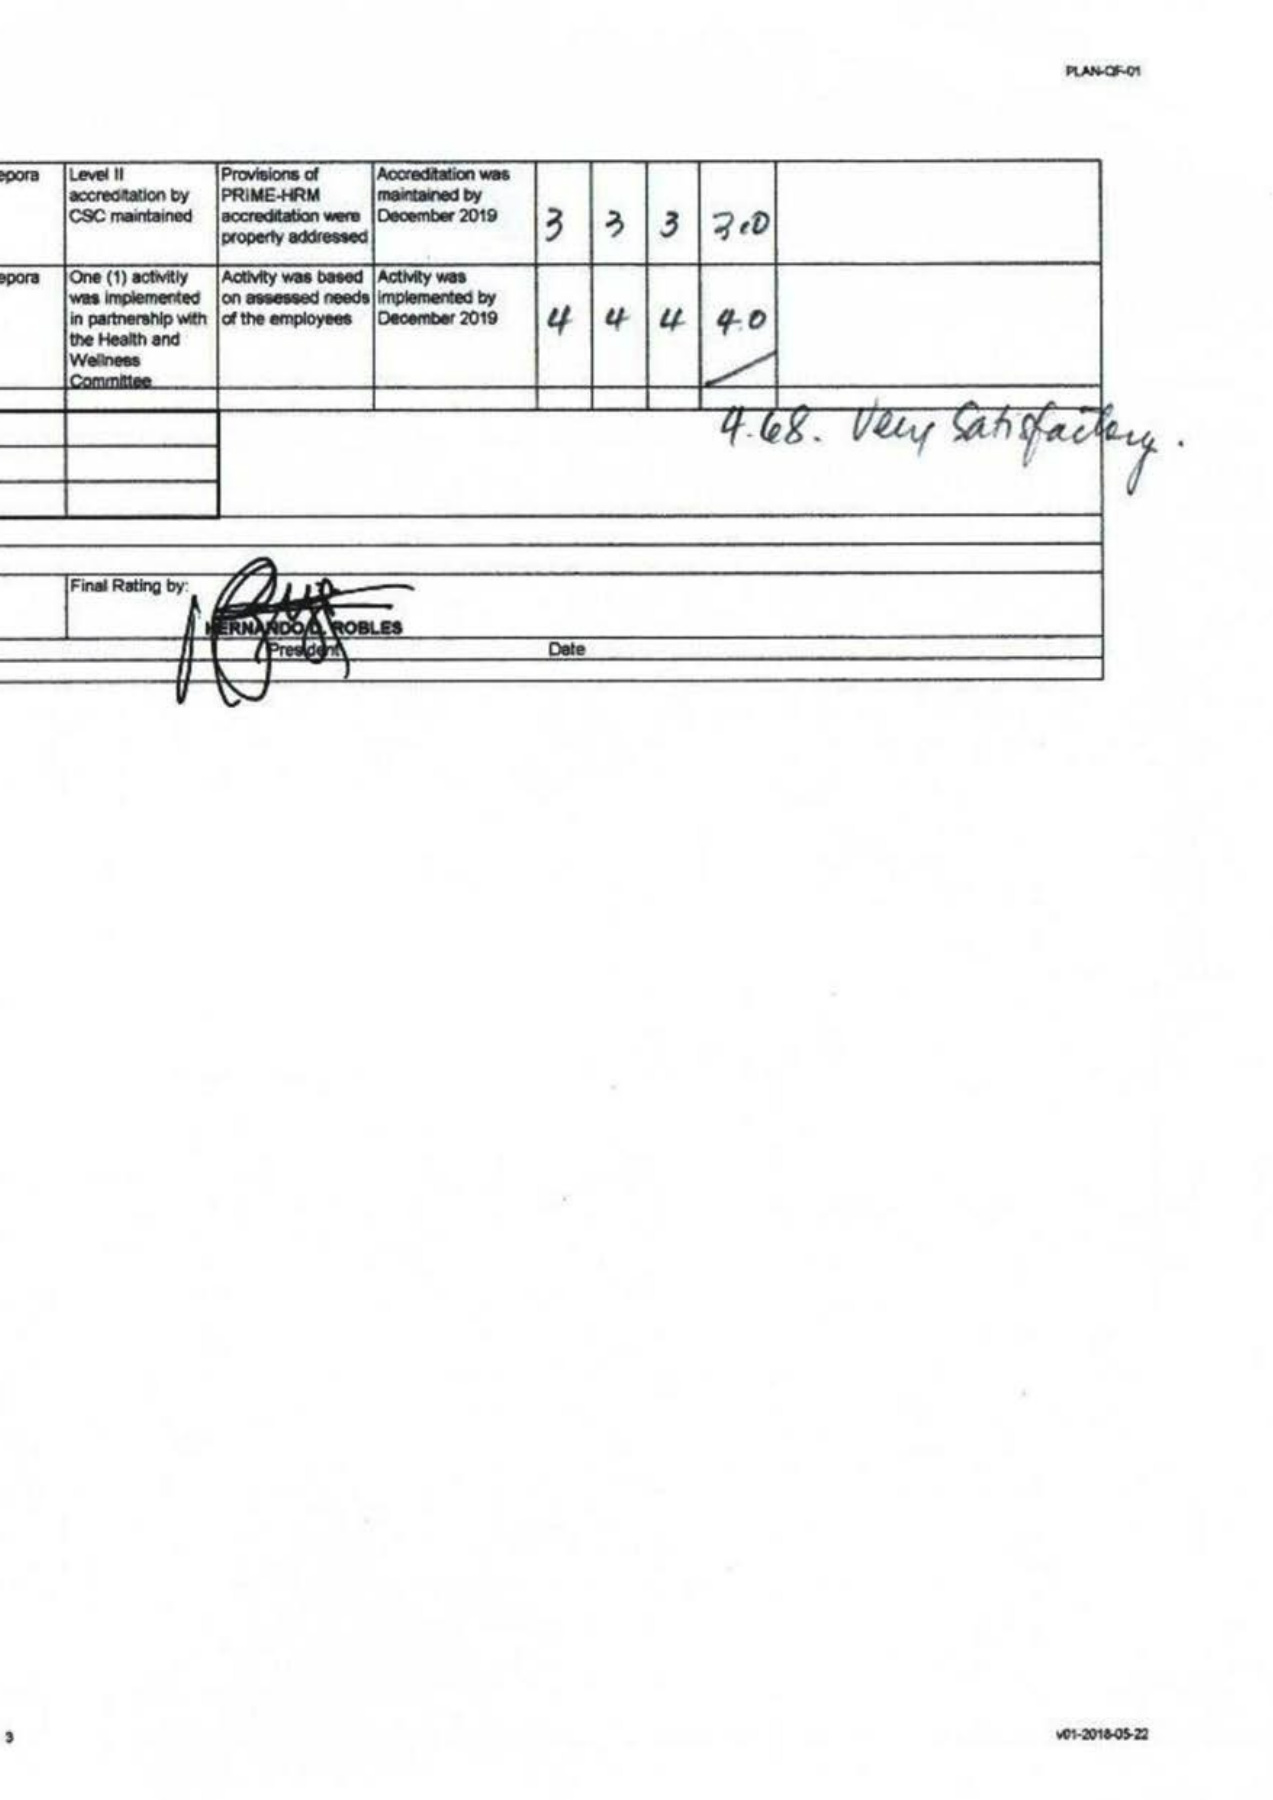 PLAN-QF-01
epora
Level II
accreditation by
CSC maintained
Provisions of
PRIME-HRM
accreditation were
properly addressed
Accreditation was
maintained by
December 2019
3 3 3 3.0
epora
One (1) activitiy
was implemented
in partnership with
the Health and
Wellness
Committee
Activity was based
on assessed needs
of the employees
Activity was
implemented by
December 2019
4 4 4 4.0
4.68. Very Satisfactory.
Final Rating by:
HERNANDO D. ROBLES
President
Date
3
v01-2018-05-22